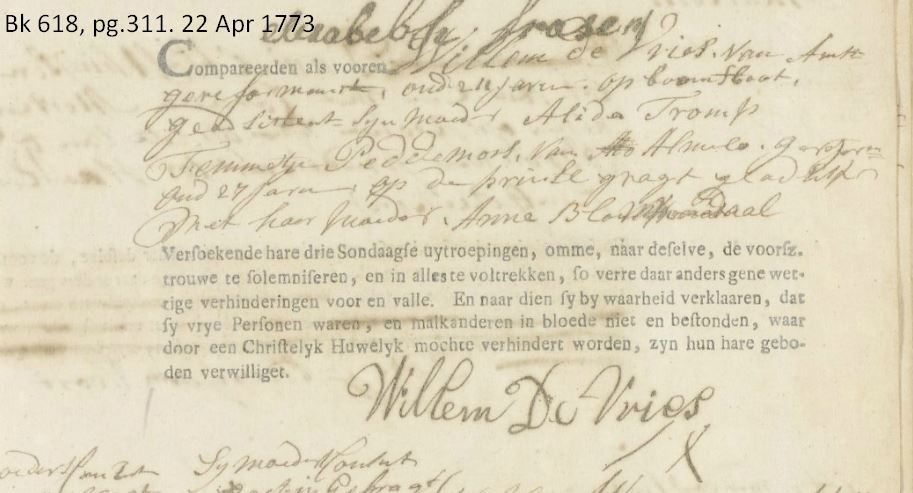 Bk 618, pg.311. 22 Apr 1773
Compareerden als vooren Willem de Vries. Van Amst
gereformeert, oud 24 Jaren. op boomsloot,
geadsisteert syn moeder Alida Tromp
Femmetje Peddemors. Van Almelo. gereform
oud 27 Jaren, op de prinse gragt geadsist
Met haar moeder. Anne
Versoekende hare drie Sondaagse uytroepingen, omme, naar deselve, de voorsz.
trouwe te solemniseren, en in alles te voltrekken, so verre daar anders gene wet-
tige verhinderingen voor en valle. En naar dien sy by waarheid verklaaren, dat
sy vrye Personen waren, en malkanderen in bloede niet en bestonden, waar
door een Christelyk Huwelyk mochte verhindert worden, zyn hun hare gebo-
den verwilliget.
Willem De Vries
X